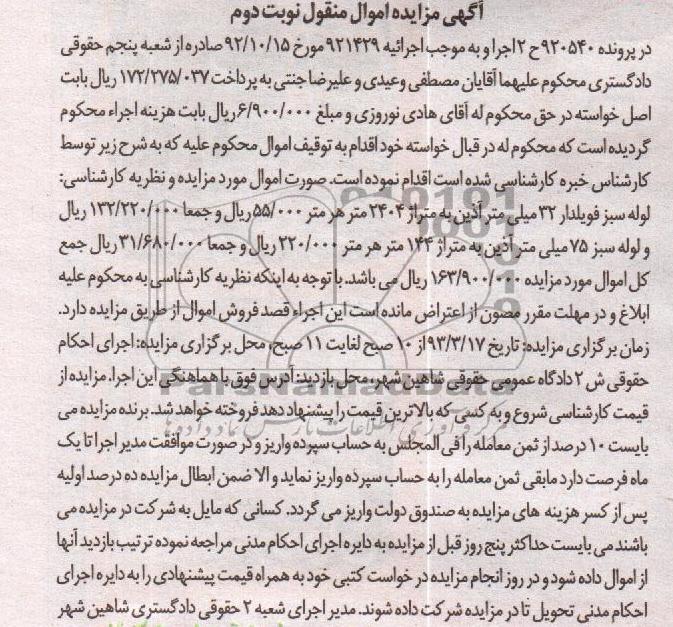 آگهی مزایده اموال منقول نوبت دوم
در پرونده ۹۲۰۵۴۰ ح ۲ اجرا و به موجب اجرائیه ۹۲۱۴۲۹ مورخ ۹۲/۱۰/۱۵ صادره از شعبه پنجم حقوقی
دادگستری محکوم علیهما آقایان مصطفی وعیدی و علیرضا جنتی به پرداخت ۱۷۲/۲۷۵/۰۳۷ ریال بابت
اصل خواسته در حق محکوم له آقای هادی نوروزی و مبلغ ۶/۹۰۰/۰۰۰ ریال بابت هزینه اجراء محکوم
گردیده است که محکوم له در قبال خواسته خود اقدام به توقیف اموال محکوم علیه که به شرح زیر توسط
کارشناس خبره کارشناسی شده است اقدام نموده است. صورت اموال مورد مزایده و نظریه کارشناسی:
لوله سبز فویلدار ۳۲ میلی متر آذین به متراژ ۲۴۰۴ متر هر متر ۵۵/۰۰۰ ریال و جمعا ۱۳۲/۲۲۰/۰۰۰ ریال
و لوله سبز ۷۵ میلی متر آذین به متراژ ۱۴۴ متر هر متر ۲۲۰/۰۰۰ ریال و جمعا ۳۱/۶۸۰/۰۰۰ ریال جمع
کل اموال مورد مزایده ۱۶۳/۹۰۰/۰۰۰ ریال می باشد. با توجه به اینکه نظریه کارشناسی به محکوم علیه
ابلاغ و در مهلت مقرر مصون از اعتراض مانده است این اجراء قصد فروش اموال از طریق مزایده دارد.
زمان برگزاری مزایده: تاریخ ۹۳/۳/۱۷ از ۱۰ صبح لغایت ۱۱ صبح، محل برگزاری مزایده: اجرای احکام
حقوقی ش ۲ دادگاه عمومی حقوقی شاهین شهر، محل بازدید: آدرس فوق با هماهنگی این اجرا. مزایده از
قیمت کارشناسی شروع و به کسی که بالاترین قیمت را پیشنهاد دهد فروخته خواهد شد. برنده مزایده می
بایست ۱۰ درصد از ثمن معامله را فی المجلس به حساب سپرده واریز و در صورت موافقت مدیر اجرا تا یک
ماه فرصت دارد مابقی ثمن معامله را به حساب سپرده واریز نماید و الا ضمن ابطال مزایده ده درصد اولیه
پس از کسر هزینه های مزایده به صندوق دولت واریز می گردد. کسانی که مایل به شرکت در مزایده می
باشند می بایست حداکثر پنج روز قبل از مزایده به دایره اجرای احکام مدنی مراجعه نموده ترتیب بازدید آنها
از اموال داده شود و در روز انجام مزایده درخواست کتبی خود به همراه قیمت پیشنهادی را به دایره اجرای
احکام مدنی تحویل تا در مزایده شرکت داده شوند. مدیر اجرای شعبه ۲ حقوقی دادگستری شاهین شهر
ParsNamadData